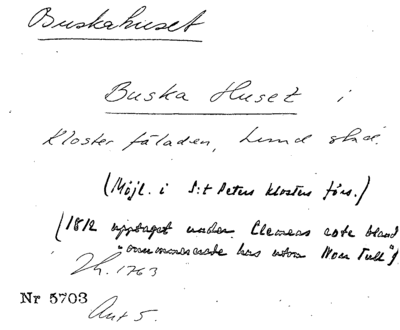 Buskahuset
Buska Huset i
Klosterfäladen, Lund stad.
(Möjl. i S:t Peters klosters förs.)
(1812 upptaget under Clemens rote bland
hus utom Norr Tull")
Jh. 1763
Nr 5703
Ant 5.